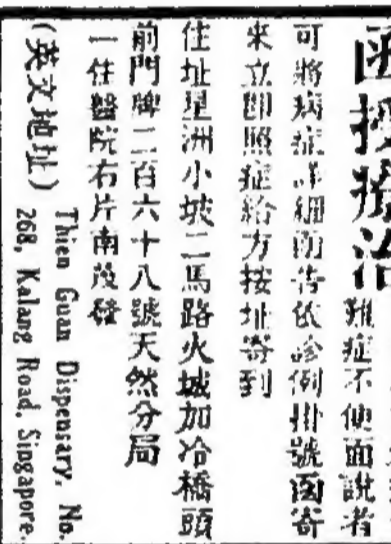 函授接治
難症不便面說者
可將病症詳細函告依診例掛號函寄
來立卽照症給方按址寄到
住址星洲小坡二馬路火城加冷橋頭
前門牌二百六十八號天然分局
一住醫院右片南茂發
(英文地址) Thien Guan Dispensary, No. 268, Kalang Road, Singapore.